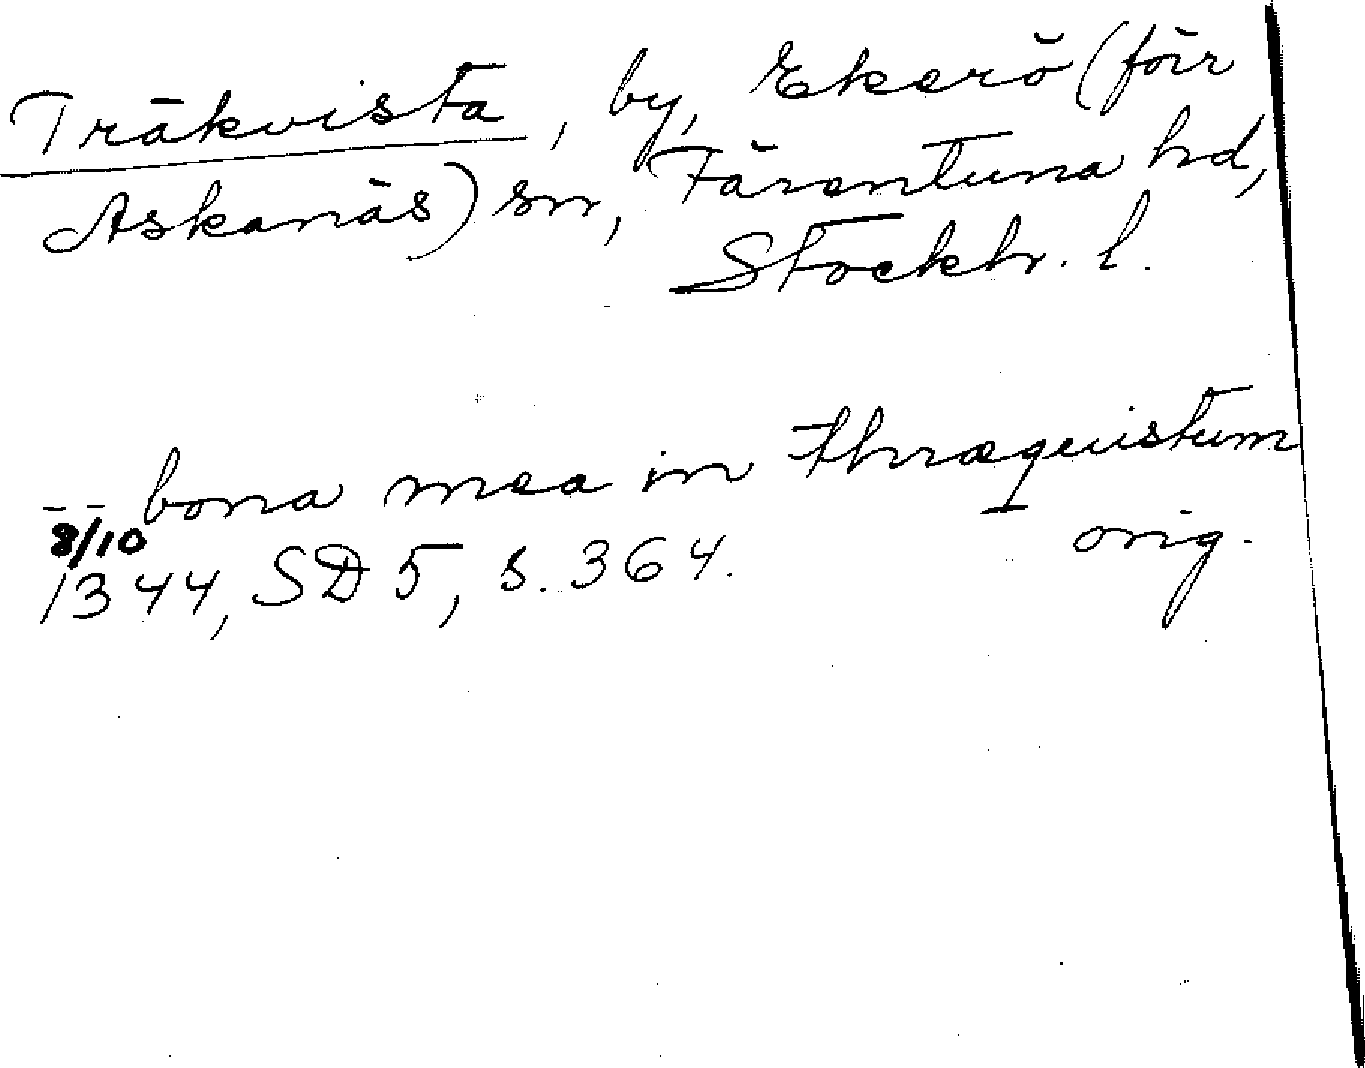 Träkvista, by, Ekerö (förr
Askanäs) sn, Färentuna hd,
Stockh. l.
-- bona mea in thræquistum
8/10 orig.
1344, SD 5, s. 364.